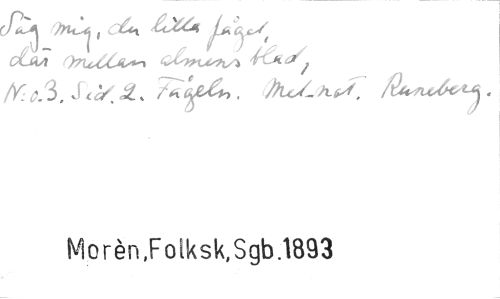 Säg mig, du lilla fågel,
där mellan almens blad,
N:o.3. Sid. 2. Fågeln. Mel-not. Runeberg.
Morèn,Folksk,Sgb.1893